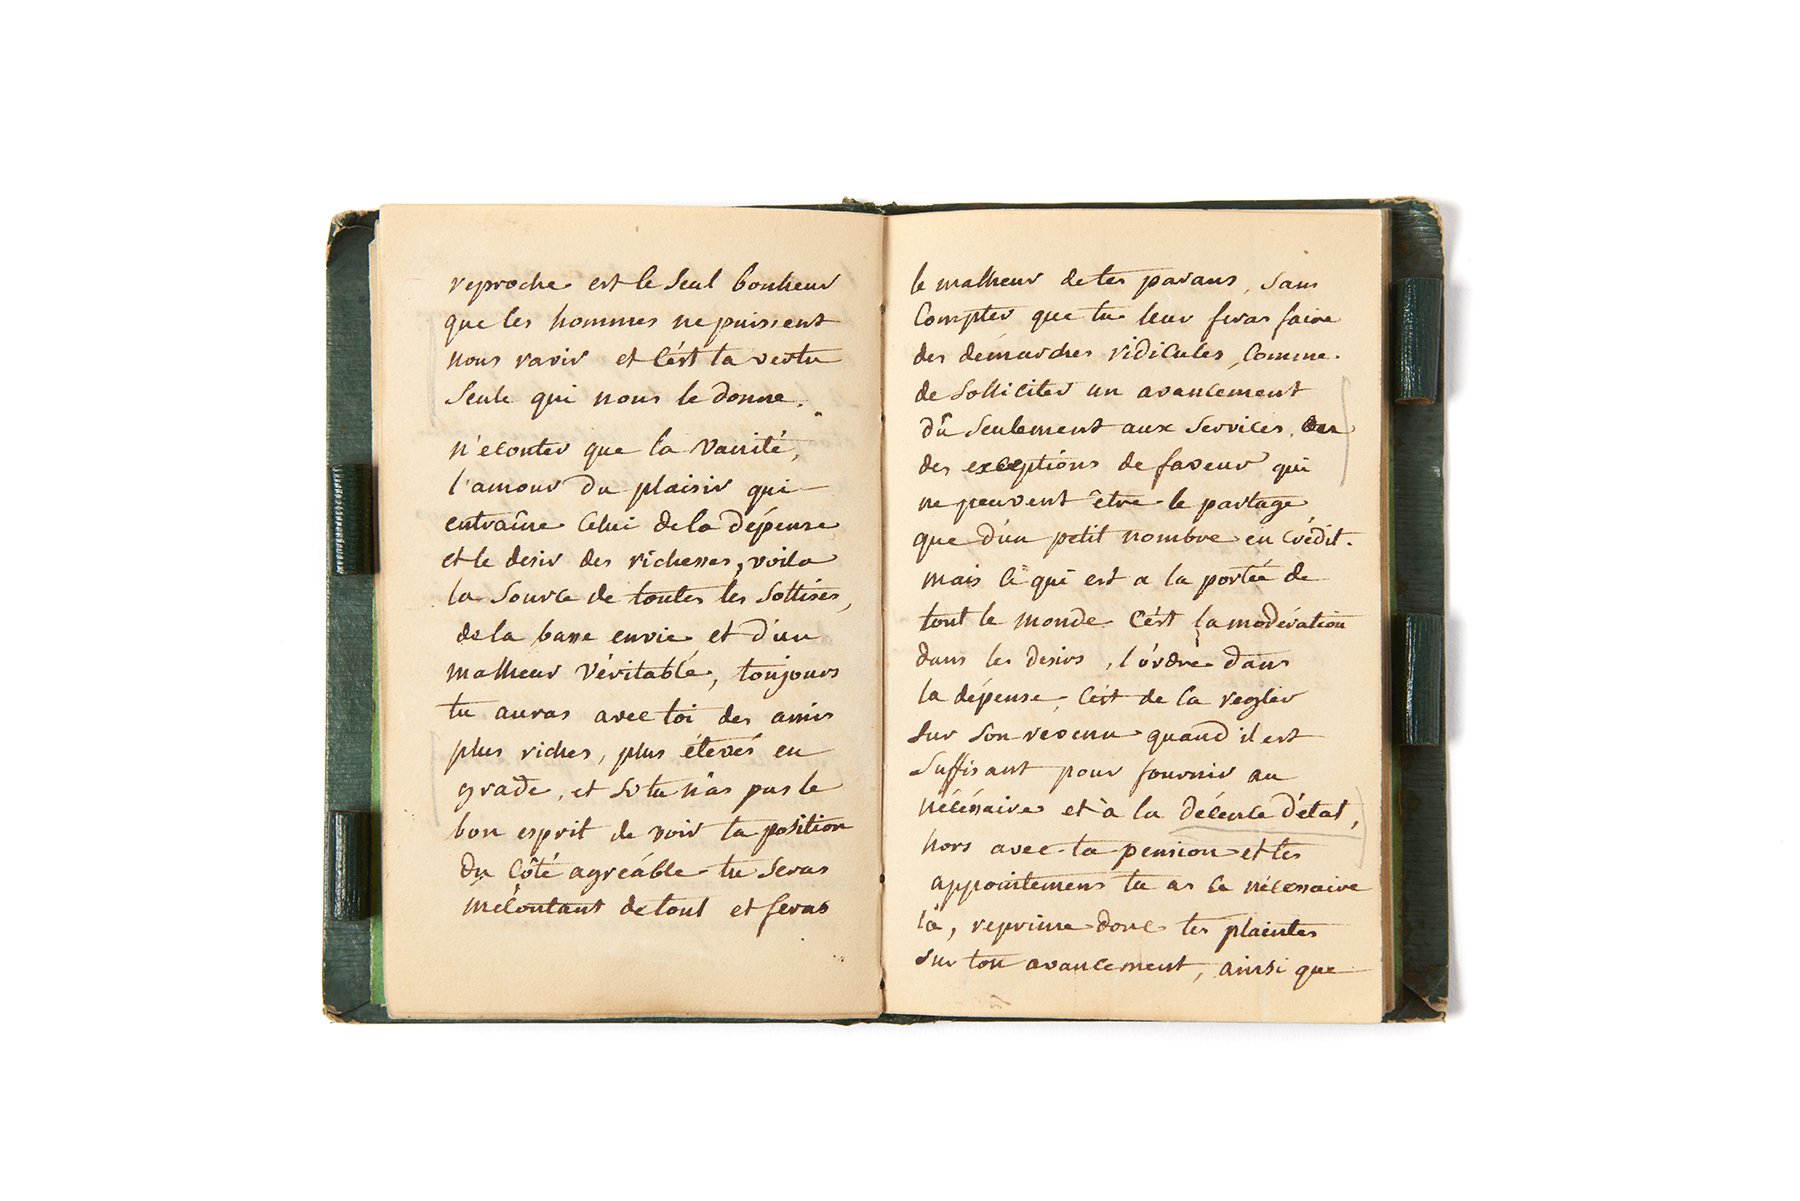 reproche est le seul bonheur
que les hommes ne puissent
nous ravir et c'est ta vertu
seule qui nous le donne.
n'ecouter que la vanité,
l'amour du plaisir qui
entraîne celui de la dépense
et le desir des richesses, voila
la source de toutes les sottises,
de la basse envie et d'un
malheur véritable, toujours
tu auras avec toi des amis
plus riches, plus élevés en
grade, et si tu n'as pas le
bon esprit de voir ta position
du côté agréable tu seras
mécontant de tout et feras
le malheur de tes parans, sans
compter que tu leur feras faire
des démarches ridicules, comme
de solliciter un avancement
dû seulement aux services,
des exceptions de faveur qui
ne peuvent être le partage
que d'un petit nombre en crédit.
mais ce qui est a la portée de
tout le monde c'est la modération
dans les desirs, l'ordre dans
la dépense, c'est de la regler
sur son revenu quand il est
suffisant pour fournir au
nécéssaire et à la décence d'état,
hors avec ta pension et tes
appointemens tu as ce nécessaire
là, reprime donc tes plaintes
sur ton avancement, ainsi que